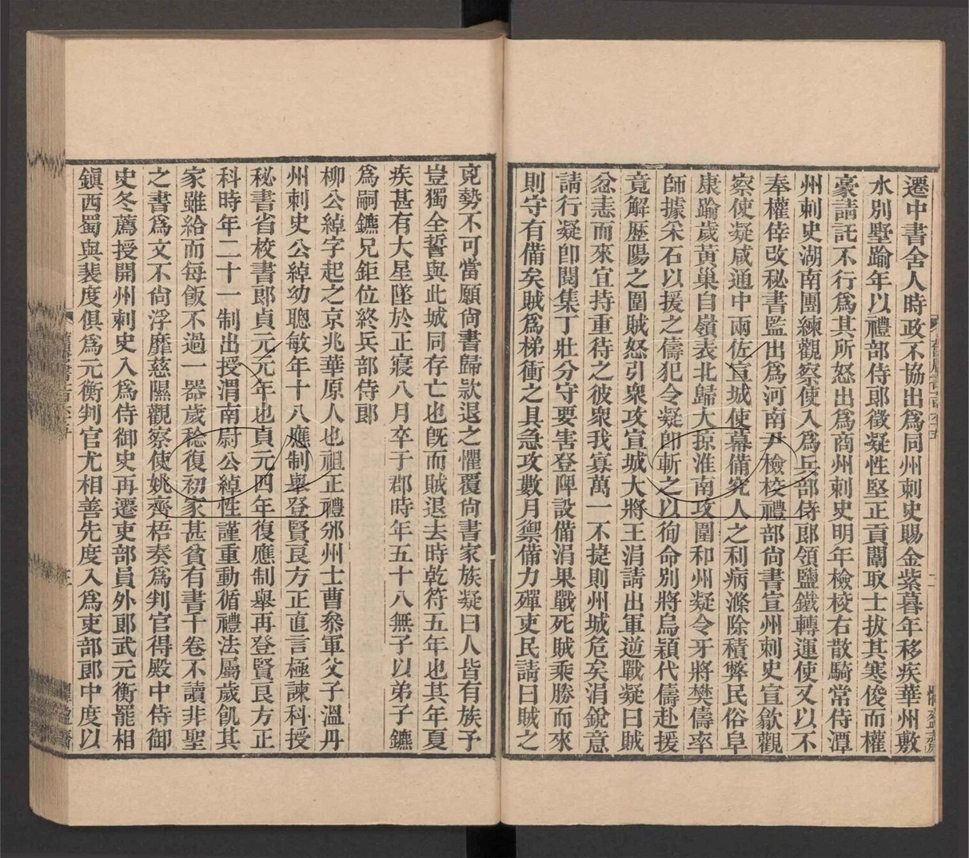 遷中書舍人時政不協出爲同州刺史賜金紫暮年移疾華州敷
水別墅踰年以禮部侍郎徵凝性堅正貢闈取士拔其寒俊而權
豪請託不行爲其所怒出爲商州刺史明年檢校右散騎常侍潭
州刺史湖南團練觀察使入爲兵部侍郎領鹽鐵轉運使又以不
奉權倖改秘書監出爲河南尹檢校禮部尚書宣州刺史宣歙觀
察使凝咸通中兩佐宣城使幕備究人之利病滌除積弊民俗阜
康踰歲黃巢自嶺表北歸大掠淮南攻圍和州凝令牙將樊儔率
師據采石以援之儔犯令凝卽斬之以徇命別將烏穎代儔赴援
竟解歷陽之圍賊怒引衆攻宣城大將王涓請出軍逆戰凝曰賊
忿恚而來宜持重待之彼衆我寡萬一不㨗則州城危矣涓銳意
請行凝卽閱集丁壯分守要害登陴設備涓果戰死賊乘勝而來
則守有備矣賊爲梯衝之具急攻數月禦備力殫吏民請曰賊之
兇勢不可當願尚書歸款退之懼覆尚書家族凝曰人皆有族予
豈獨全誓與此城同存亡也旣而賊退去時乾符五年也其年夏
疾甚有大星墜於正寢八月卒于郡時年五十八無子以弟子鑣
爲嗣鑣兄鉅位終兵部侍郎
柳公綽字起之京兆華原人也祖正禮邠州士曹叅軍父子溫丹
州刺史公綽幼聰敏年十八應制舉登賢良方正直言極諫科授
秘書省校書郎貞元元年也貞元四年復應制舉再登賢良方正
科時年二十一制出授渭南尉公綽性謹重動循禮法屬歲飢其
家雖給而每飯不過一器歲稔復初家甚貧有書千卷不讀非聖
之書爲文不尚浮靡慈隰觀察使姚齊梧奏爲判官得殿中侍御
史冬薦授開州刺史入爲侍御史再遷吏部員外郎武元衡罷相
鎭西蜀與裴度俱爲元衡判官尤相善先度入爲吏部郎中度以